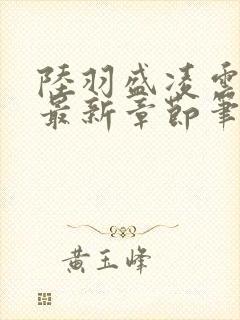 陸羽盛凌雲
最新章節筆
黃玉峰